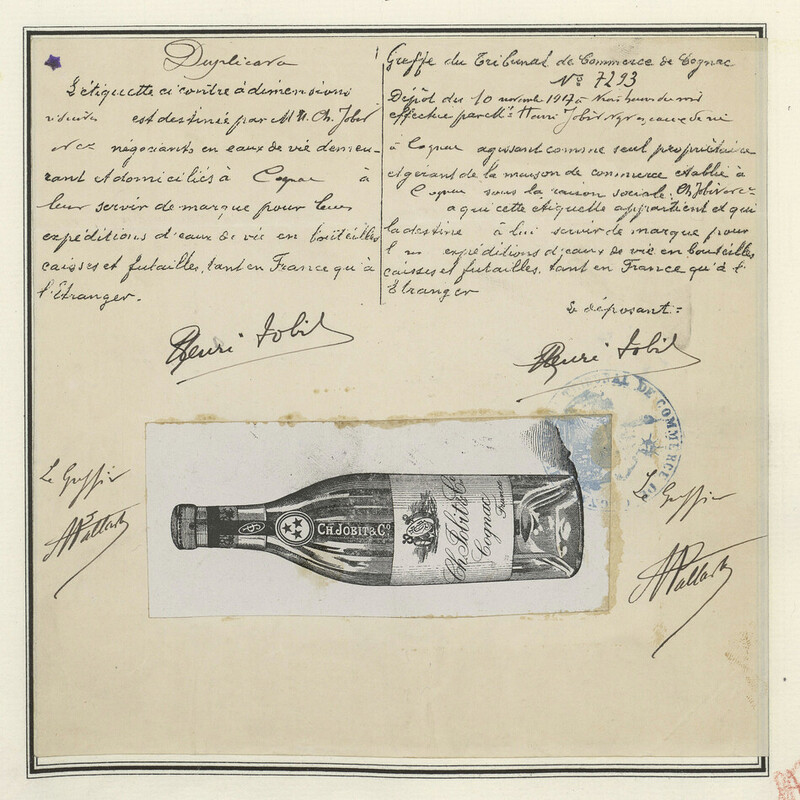 Duplicata
L'étiquette ci contre à dimensions
réduites est destinée par M. H. Ch. Jobit
et Cie négociants en eaux de vie demeu-
rant et domiciliés à Cognac à
leur servir de marque pour leurs
expéditions d'eaux de vie en bouteilles
caisses et futailles, tant en France qu'à
l'Etranger.
Henri Jobit
Greffe du Tribunal de Commerce de Cognac
No 7293
Dépôt du 10 novembre 1917 à heures du
effectué par Mr Henri Jobit Ngt en eaux de vie
à Cognac agissant comme seul propriétaire
et gérant de la maison de commerce établie à
Cognac sous la raison sociale: Ch Jobit et Cie
a qui cette étiquette appartient et qui
la destine à lui servir de marque pour
expéditions d'eaux de vie en bouteilles
caisses et futailles, tant en France qu'à l'
Etranger
Le déposant:
Henri Jobit
Le Greffier
Le Greffier
TRIBUNAL DE COMMERCE DE
CH. JOBIT & Co
Ch. Jobit & Co
Cognac
France